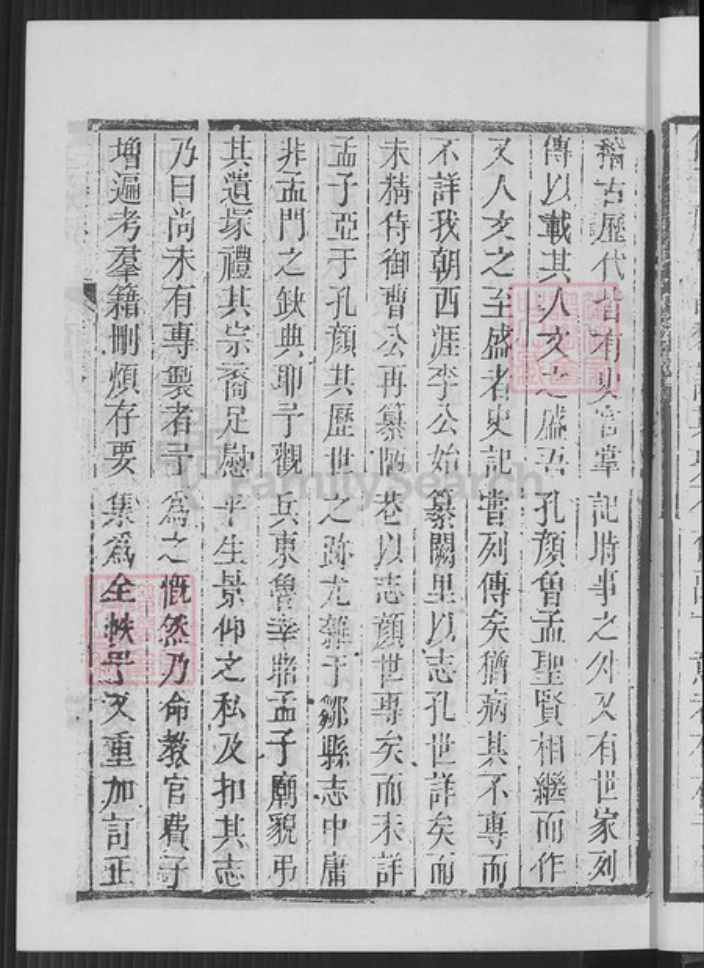 稽古歷代皆有史官掌記時事之外又有世家列
傳以載其人文之盛吾孔顏曾孟聖賢相繼而作
又人文之至盛者史記嘗列傳矣猶病其不專而
不詳我朝西涯李公始纂闕里以志孔世詳矣而
未精侍御曹公再纂陋巷以志顏世專矣而未詳
孟子亞于孔顏其歷世之跡尤雜于鄒縣志中庸
非孟門之缺典耶予觀兵東魯幸謁孟子廟貌弔
其遺塚禮其宗裔足慰平生景仰之私及扣其志
乃曰尚未有專製者予為之慨然乃命教官費子
增遍考羣籍刪煩存要集為全帙予又重加訂正
FamilySearch